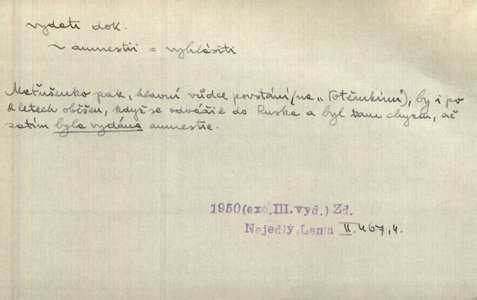 vydati dok.
~ amnestii = vyhlásiti
Matušenko pak, hlavní vůdce povstání (na „Potěmkinu"), byl i po
letech oběšen, když se odvážil do Ruska a byl tam chycen, ač
zatím byla vydána amnestie.
1950 (exc. III. vyd.) Zd.
Nejedlý, Lenin II. 467, 4.